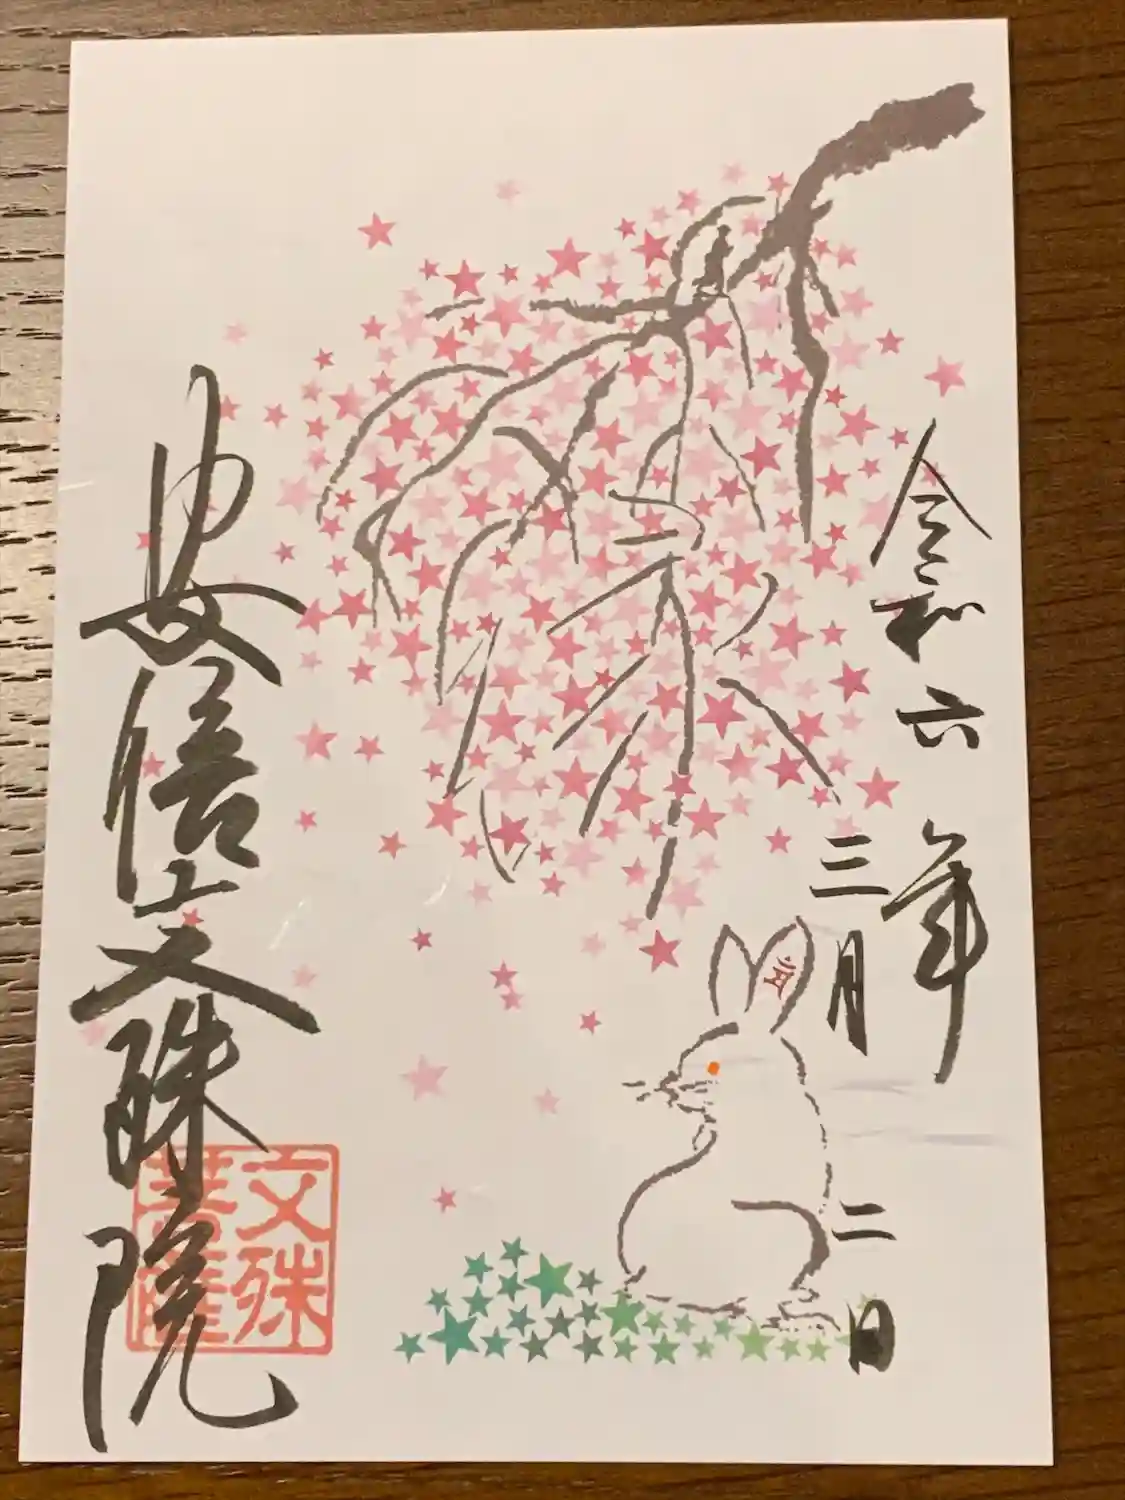 令和六年
三月二日
安倍文殊院
文殊
菩薩